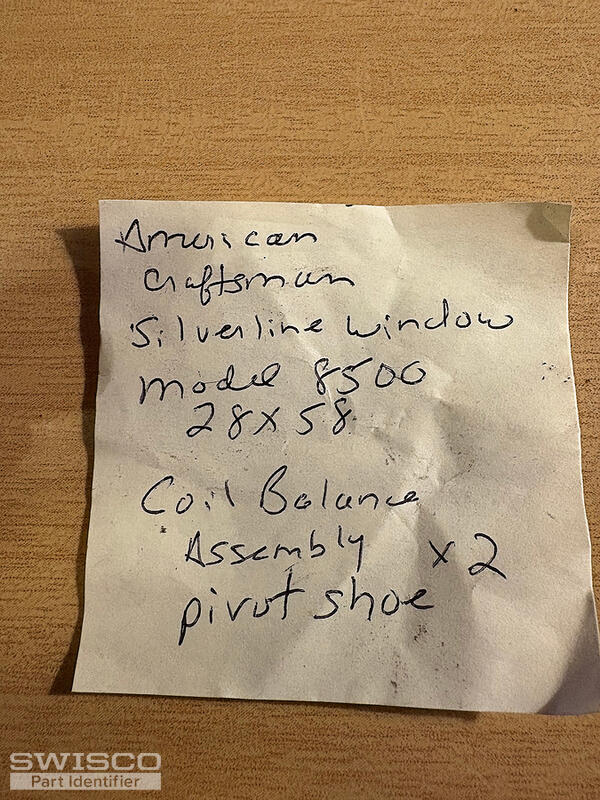 American
Craftsman
Silverline window
Model 8500
28x58
Coil Balance
Assembly x2
pivot shoe
SWISCO
Part Identifier